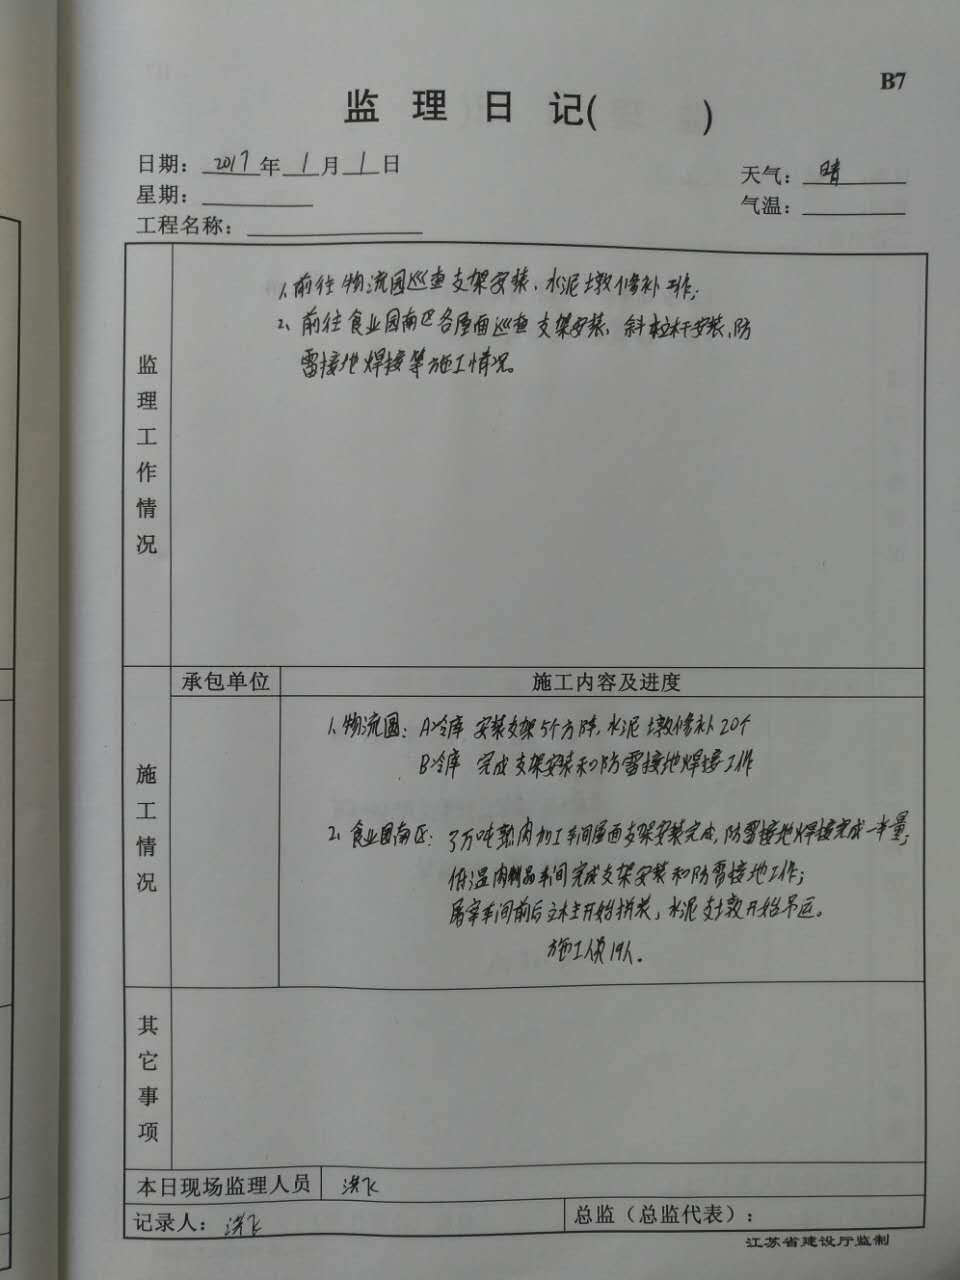 B7
监 理 日 记( )
日期: 2017年 1月 1日
天气: 晴
星期:
气温:
工程名称:
监理工作情况
1. 前往物流园巡查支架安装、水泥墩修补工作;
2、前往食业园南区各屋面巡查支架安装、斜拉杆安装、防
雷接地焊接等施工情况。
承包单位 施工内容及进度
施工情况
1. 物流园: A冷库 安装支架5个方阵, 水泥墩修补20个
B冷库 完成支架安装和防雷接地焊接工作
2. 食业园南区: 3万吨熟肉加工车间屋面支架安装完成, 防雷接地焊接完成一半量;
低温肉制品车间完成支架安装和防雷接地工作;
屠宰车间前后立柱开始拼装, 水泥支墩开始吊运。
施工人员19人.
其它事项
本日现场监理人员 洪飞
记录人: 洪飞
总监（总监代表）:
江苏省建设厅监制